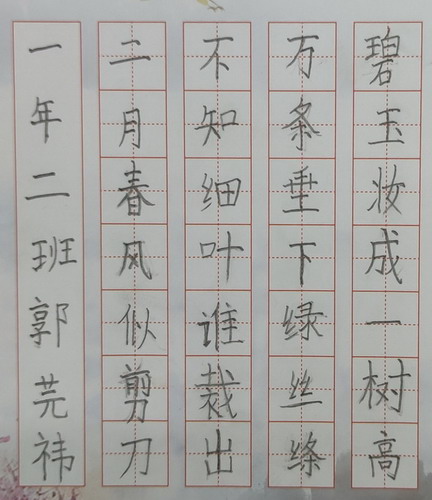 碧玉妆成一树高
万条垂下绿丝绦
不知细叶谁裁出
二月春风似剪刀
一年二班郭芫祎